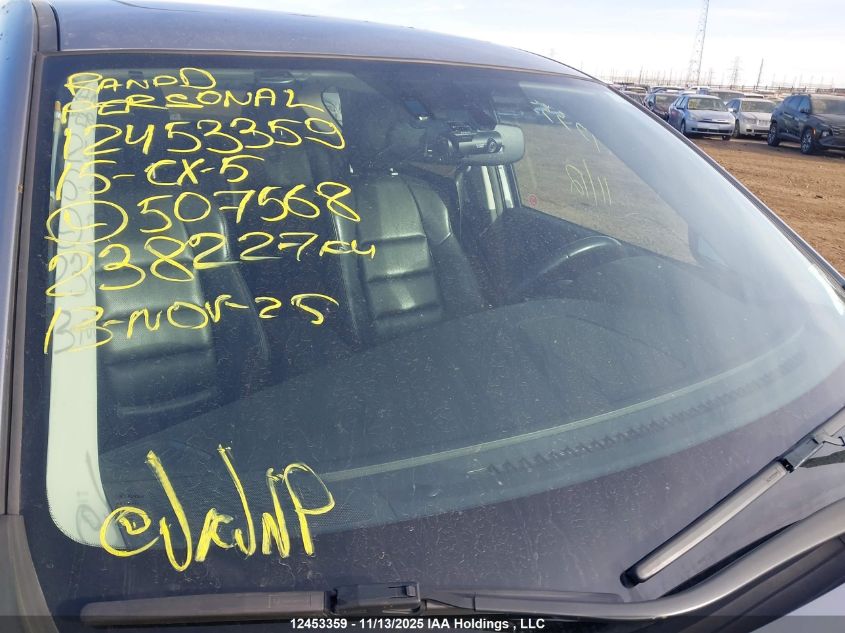 RANDD
PERSONAL
12453359
15-CX-5
507568
238227KM
13-NOV-25
12453359 - 11/13/2025 IAA Holdings , LLC